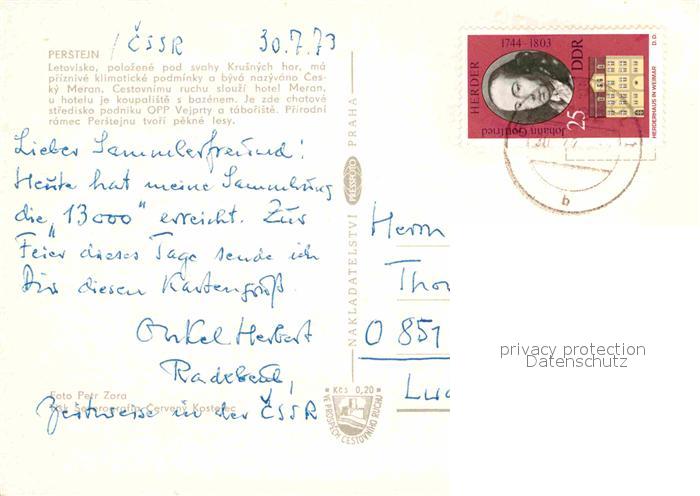 / ČSSR 30.7.73
PERŠTEJN
Letovisko, položené pod svahy Krušných hor, má
příznivé klimatické podmínky a bývá nazýváno Čes-
ký Meran. Cestovnímu ruchu slouží hotel Meran,
u hotelu je koupaliště s bazénem. Je zde chatové
středisko podniku OPP Vejprty a tábořiště. Přírodní
rámec Perštejnu tvoří pěkné lesy.
Lieber Sammlerfreund!
Heute hat meine Sammlung
die „13000" erreicht. Zur
Feier dieses Tage sende ich
Dir diesen Kartengruß.
Onkel Herbert
Radebeul,
zeitweise in der ČSSR
Foto Petr Zora
Červený Kostelec
NAKLADATELSTVÍ PRESSFOTO PRAHA
Kčs 0,20
VE PROSPĚCH CESTOVNÍHO RUCHU
HERDER
1744-1803
Johann Gottfried
DDR
25
HERDERHAUS IN WEIMAR
D.D.
b
Herrn
Tho
O 851
privacy protection
Datenschutz